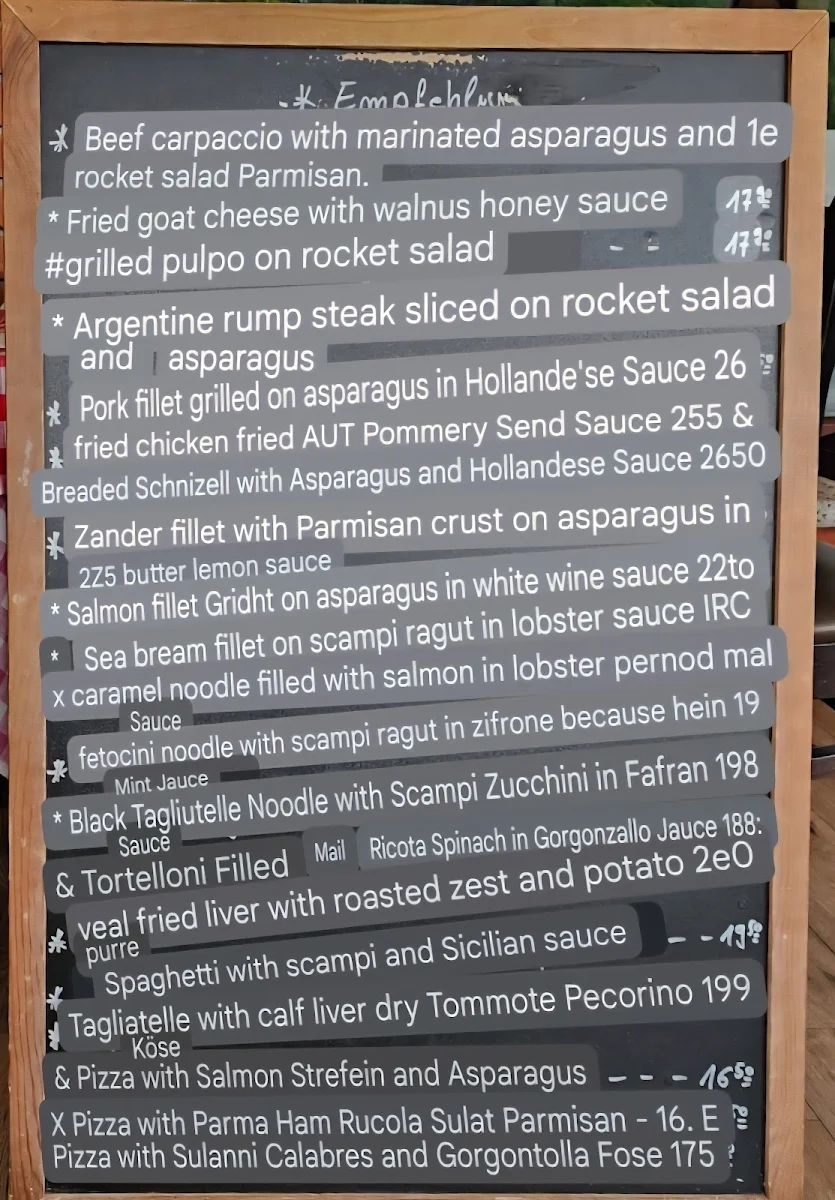 * Empfehlun
* Beef carpaccio with marinated asparagus and 1e
rocket salad Parmisan.
* Fried goat cheese with walnus honey sauce 17
#grilled pulpo on rocket salad - - 17
* Argentine rump steak sliced on rocket salad
and | asparagus
* Pork fillet grilled on asparagus in Hollande'se Sauce 26
* fried chicken fried AUT Pommery Send Sauce 255 &
Breaded Schnizell with Asparagus and Hollandese Sauce 2650
* Zander fillet with Parmisan crust on asparagus in
2Z5 butter lemon sauce
* Salmon fillet Gridht on asparagus in white wine sauce 22to
* Sea bream fillet on scampi ragut in lobster sauce IRC
x caramel noodle filled with salmon in lobster pernod mal
Sauce
* fetocini noodle with scampi ragut in zifrone because hein 19
Mint Jauce
* Black Tagliutelle Noodle with Scampi Zucchini in Fafran 198
Sauce
& Tortelloni Filled Mail Ricota Spinach in Gorgonzallo Jauce 188:
* veal fried liver with roasted zest and potato 2e0
purre
* Spaghetti with scampi and Sicilian sauce - - 19 50
* Tagliatelle with calf liver dry Tommote Pecorino 199
Köse
& Pizza with Salmon Strefein and Asparagus - - - 16 50
X Pizza with Parma Ham Rucola Sulat Parmisan - 16. E
Pizza with Sulanni Calabres and Gorgontolla Fose 175